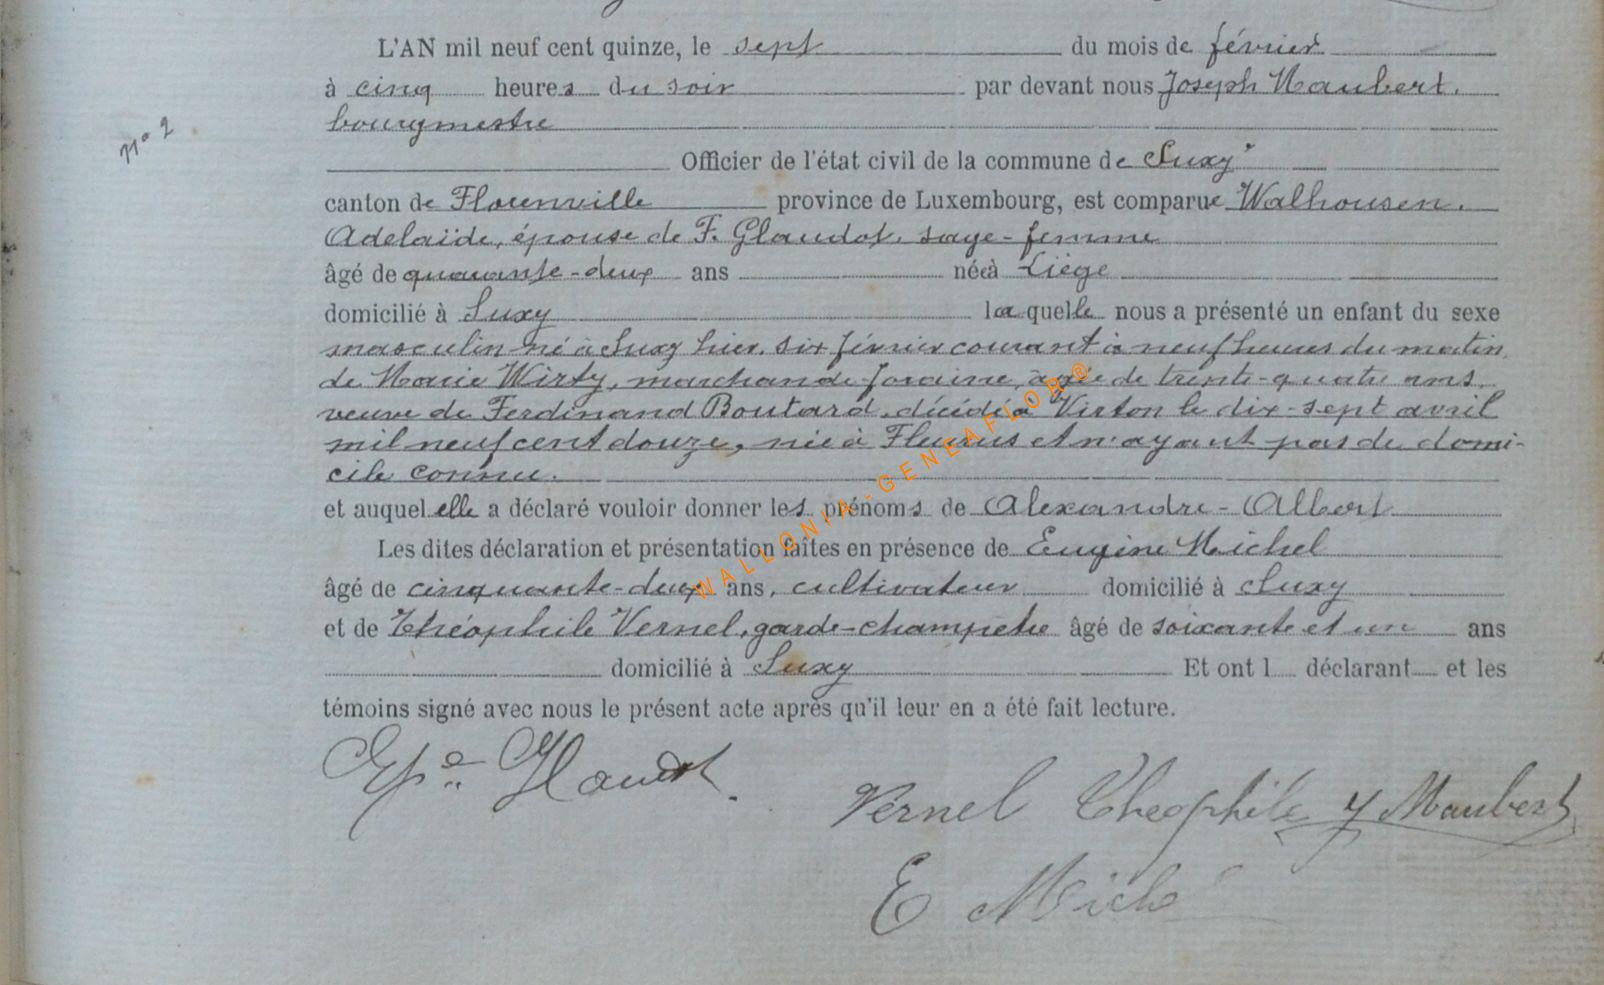 L'AN mil neuf cent quinze, le sept du mois de février
à cinq heures du soir par devant nous Joseph Maubert.
bourgmestre
N° 2
Officier de l'état civil de la commune de Suxy
canton de Florenville province de Luxembourg, est comparue Walhousen.
Adelaïde, épouse de F. Glaudot, sage-femme
âgé de quarante-deux ans née à Liège
domicilié à Suxy laquelle nous a présenté un enfant du sexe
masculin né à Suxy hier, six février courant à neuf heures du matin,
de Marie Wirty, marchande foraine, âgée de trente-quatre ans,
veuve de Ferdinand Boutard, décédé à Virton le dix-sept avril
mil neuf cent douze, née à Fleurus et n'ayant pas de domi-
cile connu.
et auquel elle a déclaré vouloir donner les prénoms de Alexandre-Albert
Les dites déclaration et présentation faites en présence de Eugène Michel
âgé de cinquante-deux ans, cultivateur domicilié à Suxy
et de Théophile Vernel, garde-champêtre âgé de soixante et un ans
domicilié à Suxy Et ont l déclarant et les
témoins signé avec nous le présent acte après qu'il leur en a été fait lecture.
Glaudot
Vernel Théophile J Maubert
E Michel
WALLONIA-GENEAFLOR®